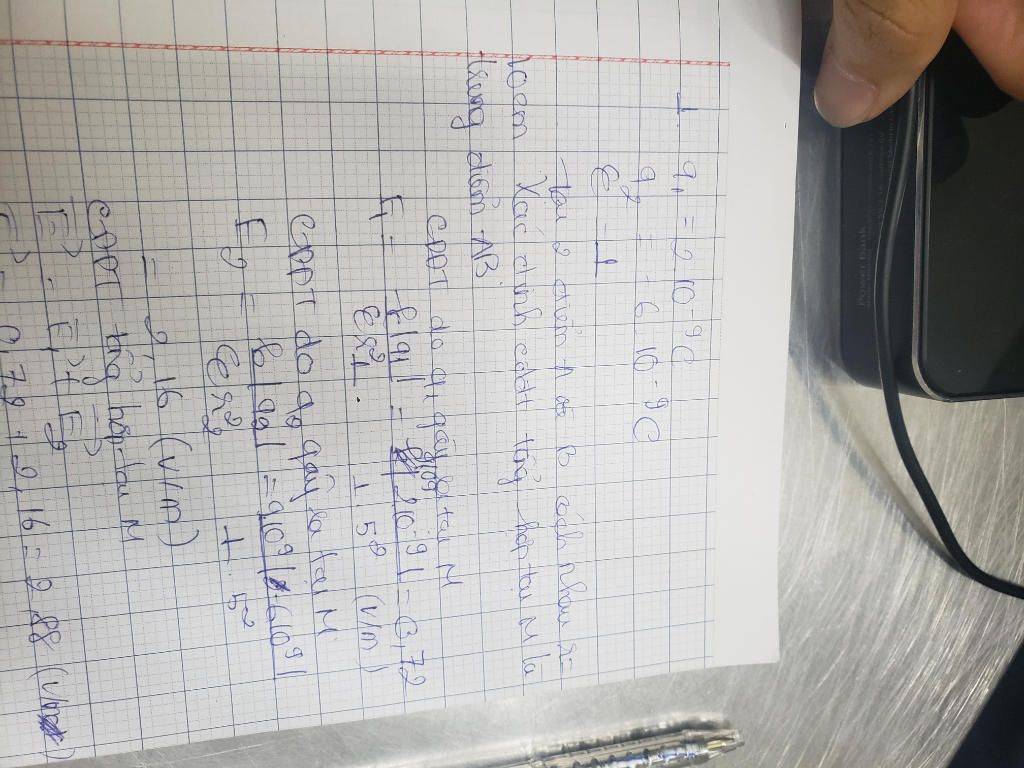 1. q₁ = 2.10-9C
q₂ = -6.10-9C
ε = 1
tại 2 điểm A và B cách nhau r=
10cm Xác định cđđt tổng hợp tại M là
trung điểm AB
CĐĐT do q₁ gây ra tại M
E₁ = k|q₁| / εr²₁ = 2.10-9| / 1.5² = 0,72 (V/m)
CĐĐT do q₂ gây ra tại M
E₂ = k|q₂| / εr²₂ = 9.10⁹|-6.10-9| / 1.5²
= 2,16 (V/m)
CĐĐT tổng hợp tại M
E = E₁ + E₂
E = 0,72 + 2,16 = 2,88 (V/m)
Power Bank